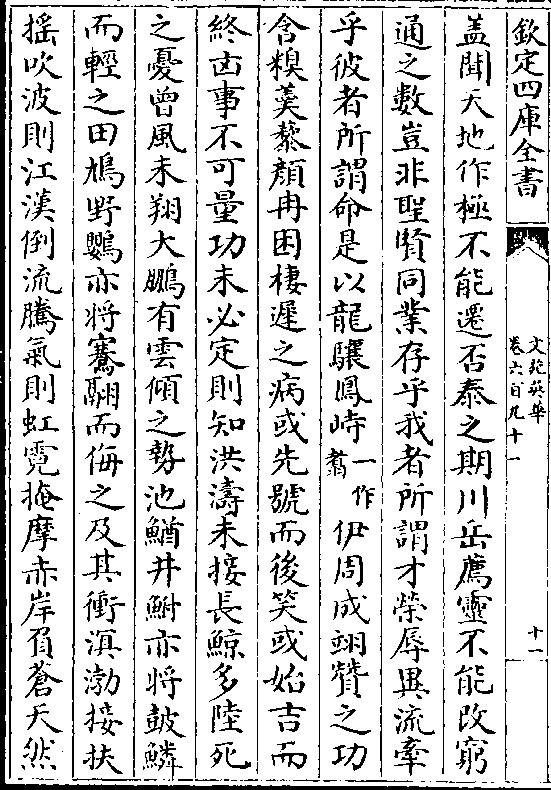 欽定四庫全書
文苑英華
卷六百九十一
十一
盖聞天地作極不能遷否泰之期川岳薦靈不能改窮
通之數豈非聖賢同業存乎我者所謂才榮辱異流牽
乎彼者所謂命是以龍驤鳳峙一作翥伊周成翊贊之功
含糗羮藜顔冉困棲遲之病或先號而後笑或始吉而
終凶事不可量功未必定則知洪濤未接長鯨多陸死
之憂曾風未翔大鵬有雲傾之勢池鰌井鮒亦將鼓鱗
而輕之田鳩野鷃亦將騫翮而侮之及其衝溟渤接扶
揺吹波則江漢倒流騰氣則虹霓掩摩赤岸負蒼天然